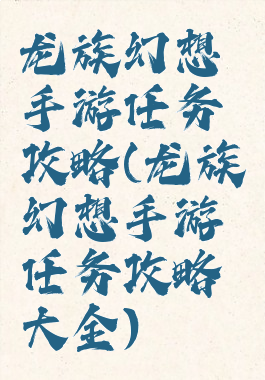 龙族幻想
手游任务
攻略(龙族
幻想手游
任务攻略
大全)